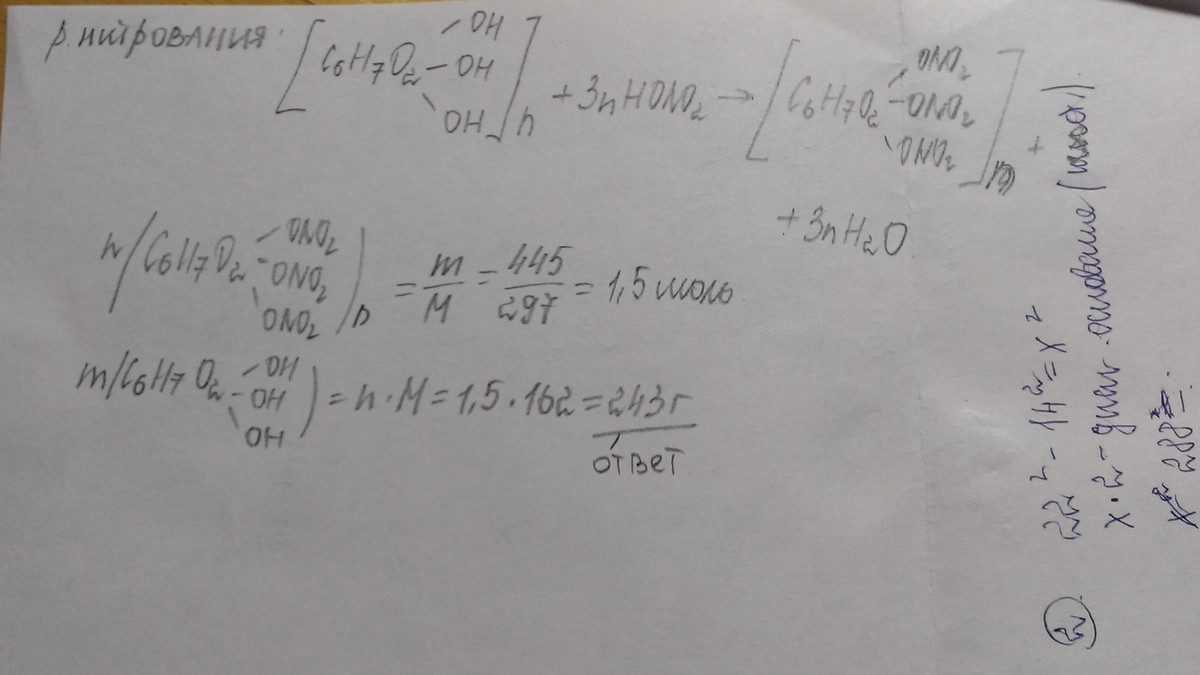 р. нитрования:
[C6H7O2 –OH –OH –OH]n + 3nHONO2 → [C6H7O2 –ONO2 –ONO2 –ONO2]n +
+ 3nH2O
n(C6H7O2 –ONO2 –ONO2 –ONO2)n = m/M = 445/297 = 1,5 моль
m(C6H7O2 –OH –OH –OH) = n · M = 1,5 · 162 = 243 г
ответ
2. 22² - 14² = x²
x · 2 - основание
x² 288